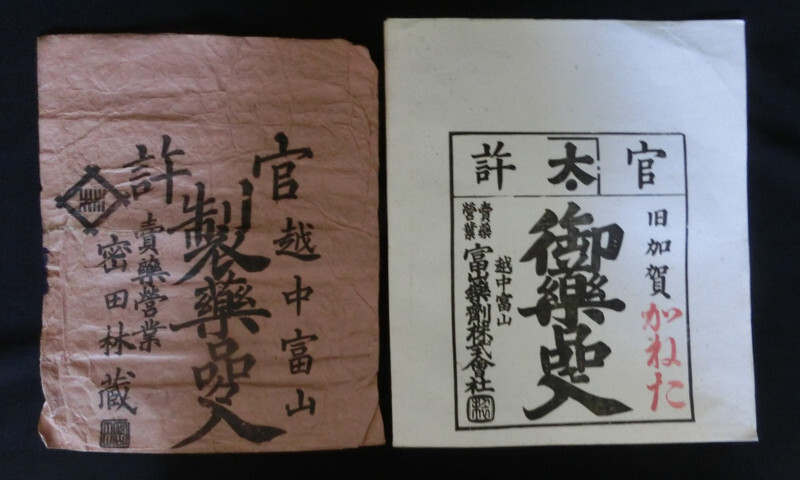 官許
越中富山
製藥品入
賣藥營業
密田林蔵
官許
大
旧加賀
かねた
御藥品入
越中富山
賣藥營業
富山藥劑株式會社